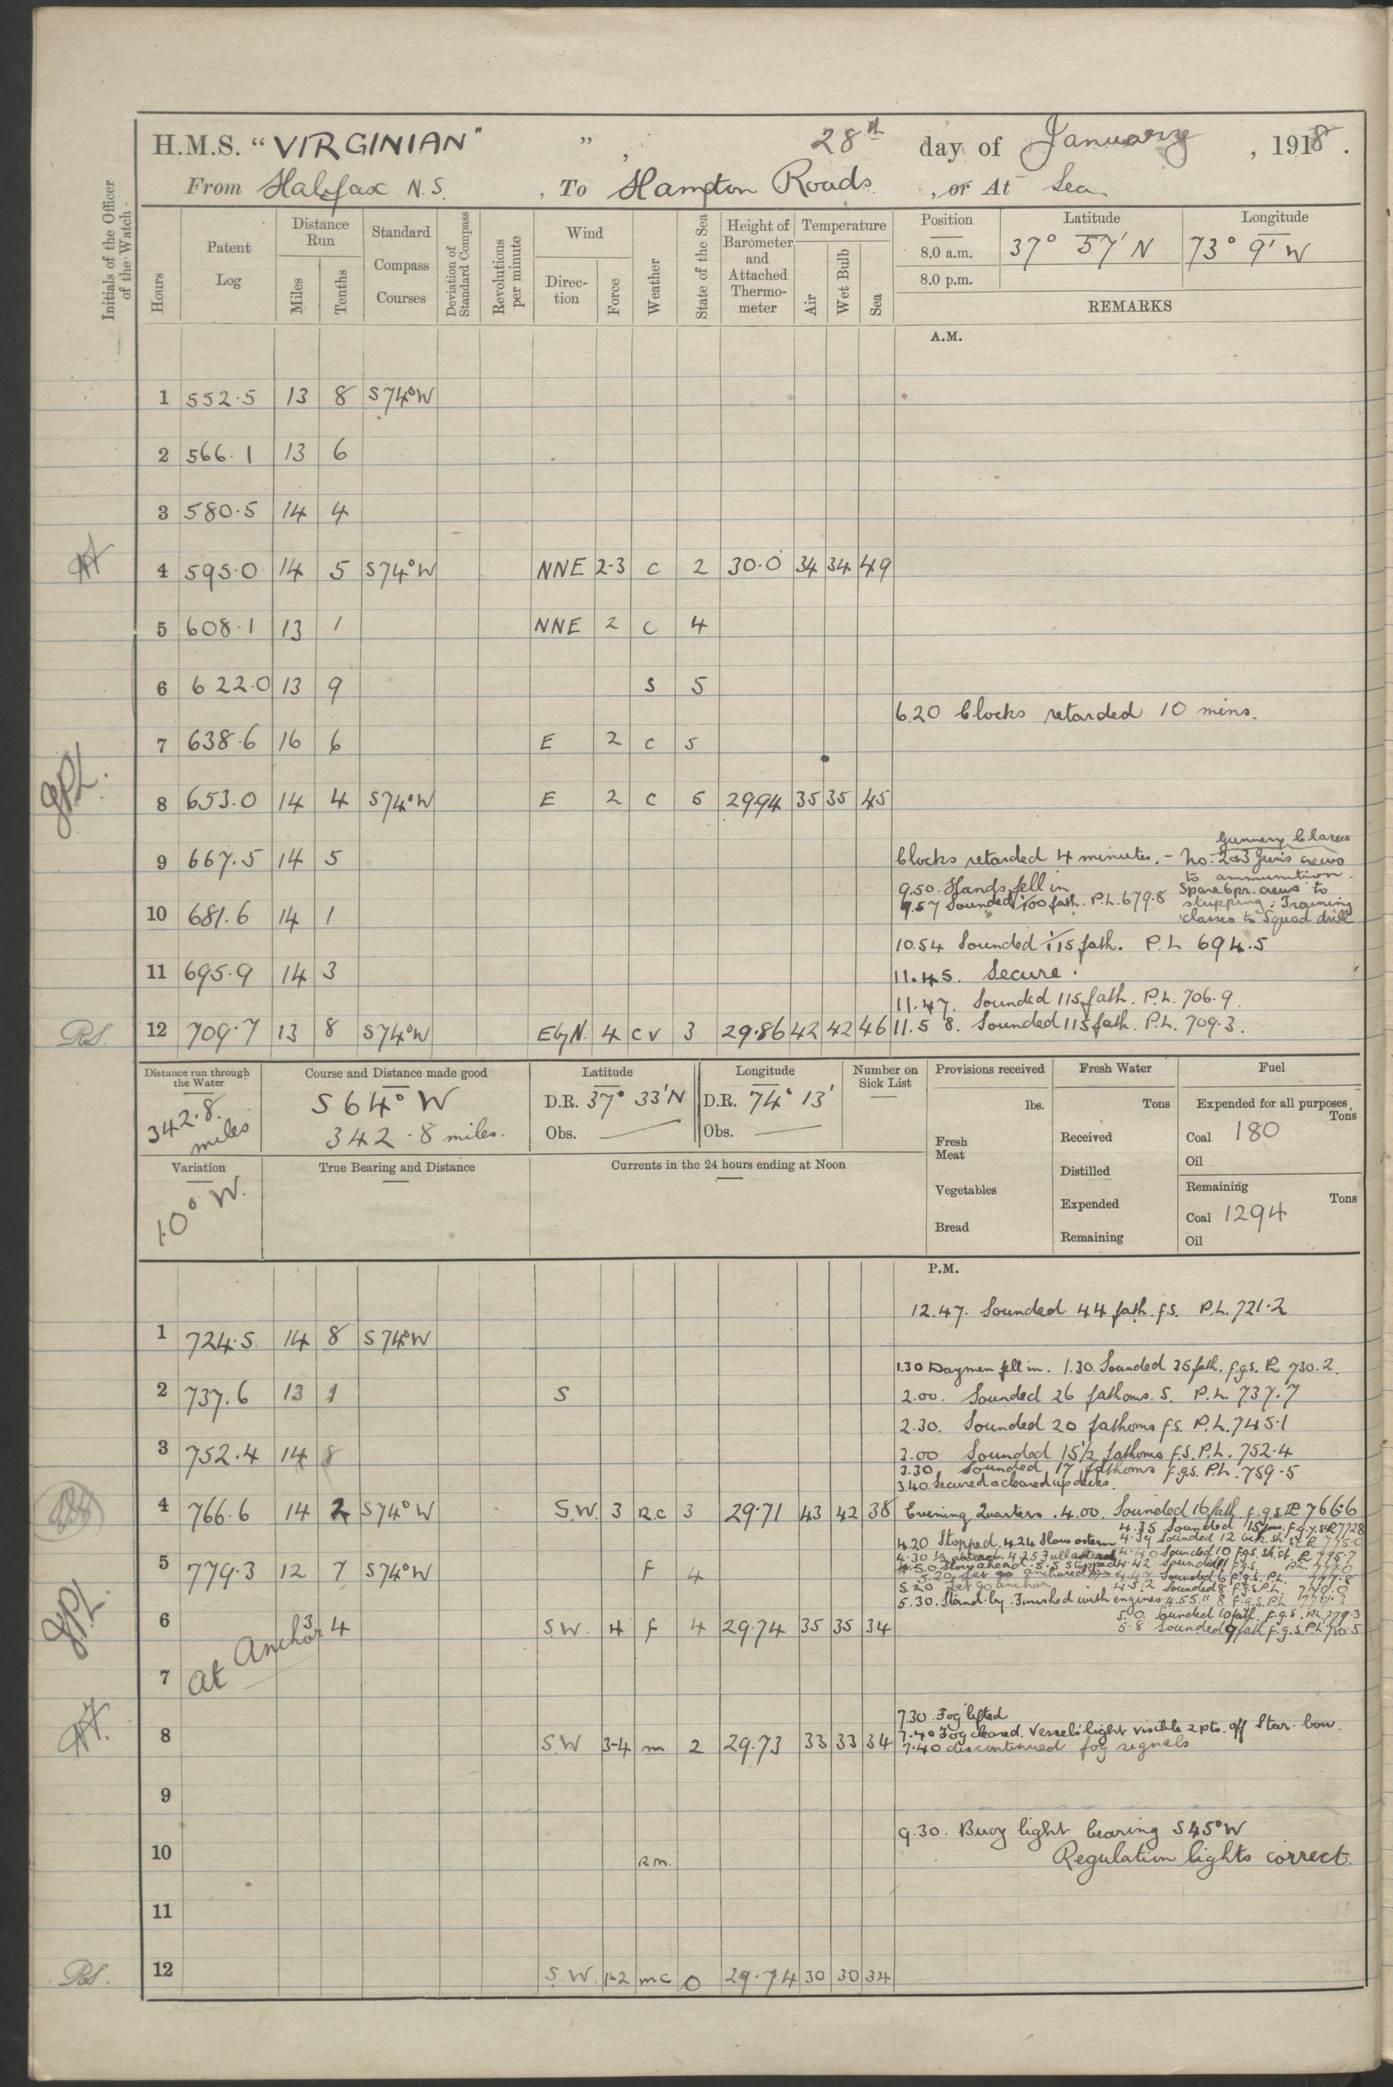 H.M.S. "VIRGINIAN" ", 28th day of January, 1918.
From Halifax N.S., To Hampton Roads, or At Sea
Initials of the Officer of the Watch
Hours
Patent Log
Distance Run
Miles
Tenths
Standard Compass Courses
Deviation of Standard Compass
Revolutions per minute
Wind
Direction
Force
Weather
State of the Sea
Height of Barometer and Attached Thermometer
Temperature
Air
Wet Bulb
Sea
Position
8.0 a.m.
8.0 p.m.
Latitude
37° 57' N
Longitude
73° 9' W
REMARKS
A.M.
1 552.5 13 8 S74°W
2 566.1 13 6
3 580.5 14 4
4 595.0 14 5 S74°W NNE 2-3 c 2 30.0 34 34 49
5 608.1 13 1 NNE 2 c 4
6 622.0 13 9 s 5
6.20 Clocks retarded 10 mins.
7 638.6 16 6 E 2 c 5
JPL.
8 653.0 14 4 S74°W E 2 c 5 29.94 35 35 45
9 667.5 14 5 Clocks retarded 4 minutes. - No. 2&3 Guns crews
Gunnery Classes
to ammunition.
9.50. Hands fell in
Spare 6pr. crews to
9.57 Sounded 100 fath. P.L. 679.8
stripping: Training
classes to Squad drill
10 681.6 14 1
10.54 Sounded 115 fath. P.L 694.5
11 695.9 14 3 11.45. Secure.
11.47. Sounded 115 fath. P.L. 706.9.
RS. 12 709.7 13 8 S74°W EbyN. 4 cv 3 29.86 42 42 46 11.58. Sounded 115 fath. P.L. 709.3.
Distance run through the Water
342.8. miles
Course and Distance made good
S 64° W
342.8 miles.
Latitude
D.R. 37° 33'N
Obs.
Longitude
D.R. 74° 13'
Obs.
Number on Sick List
Provisions received
lbs.
Fresh Meat
Vegetables
Bread
Fresh Water
Tons
Received
Distilled
Expended
Remaining
Fuel
Expended for all purposes,
Tons
Coal 180
Oil
Remaining
Tons
Coal 1294
Oil
Variation
10° W.
True Bearing and Distance
Currents in the 24 hours ending at Noon
P.M.
12.47. Sounded 44 fath. f.s. P.L. 721.2
1 724.5 14 8 S74°W
1.30 Daymen fell in. 1.30. Sounded 35 fath. f.g.s. PL 730.2.
2 737.6 13 1 S 2.00. Sounded 26 fathoms. S. P.L. 737.7
2.30. Sounded 20 fathoms f.s. P.L. 745.1
3 752.4 14 8 3.00 Sounded 15½ fathoms f.s. P.L. 752.4
3.30 Sounded 17 fathoms f.g.s. P.L. 759.5
3.40. Secured & cleared up decks.
4 766.6 14 2 S74°W S.W. 3 R.c 3 29.71 43 42 38 Evening Quarters. 4.00. Sounded 16 fath. f.g.s. PL 766.6
4.20 Stopped. 4.24 Slow astern
5 779.3 12 7 S74°W f 4
5.20 Let go anchor
5.30. Stand by. Finished with engines
5.0. Sounded 10 fath. f.g.s. P.L. 779.3
5.8 Sounded 9 fath f.g.s. P.L. 780.5
JPL.
6 3 4 S.W. 4 f 4 29.74 35 35 34
At Anchor
7
7.30. Fog lifted
7.40 Fog cleared. Vessels light visible 2 pts. off Star. bow.
8 S.W 3-4 m 2 29.73 33 33 34 7.40 discontinued fog signals
9
9.30. Buoy light bearing S45°W
10 R.m. Regulation lights correct.
11
RS. 12 S.W. 1-2 mc 0 29.74 30 30 34